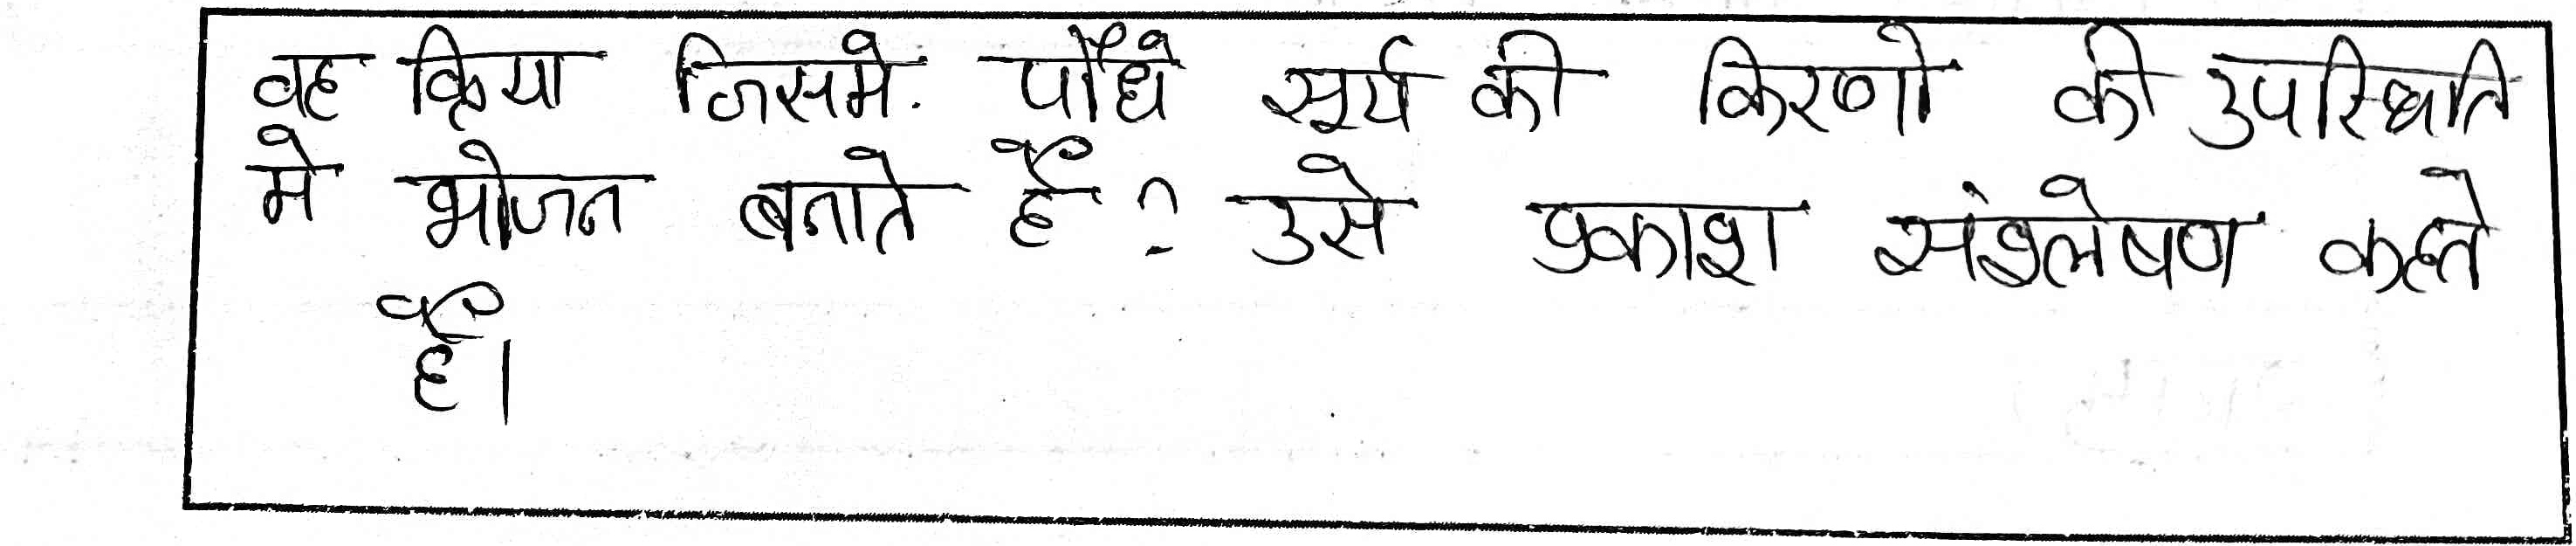 वह क्रिया जिसमे. पौधे सूर्य की किरणो की उपस्थिति
मे भोजन बनाते हैं? उसे प्रकाश संश्लेषण कहते
हैं।